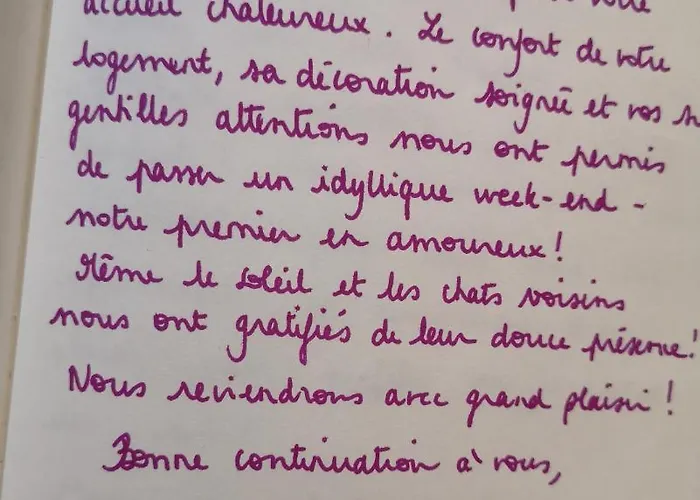 accueil chaleureux. Le confort de votre
logement, sa décoration soignée et vos
gentilles attentions nous ont permis
de passer un idyllique week-end -
notre premier en amoureux !
Même le soleil et les chats voisins
nous ont gratifiés de leur douce présence !
Nous reviendrons avec grand plaisir !
Bonne continuation à vous,